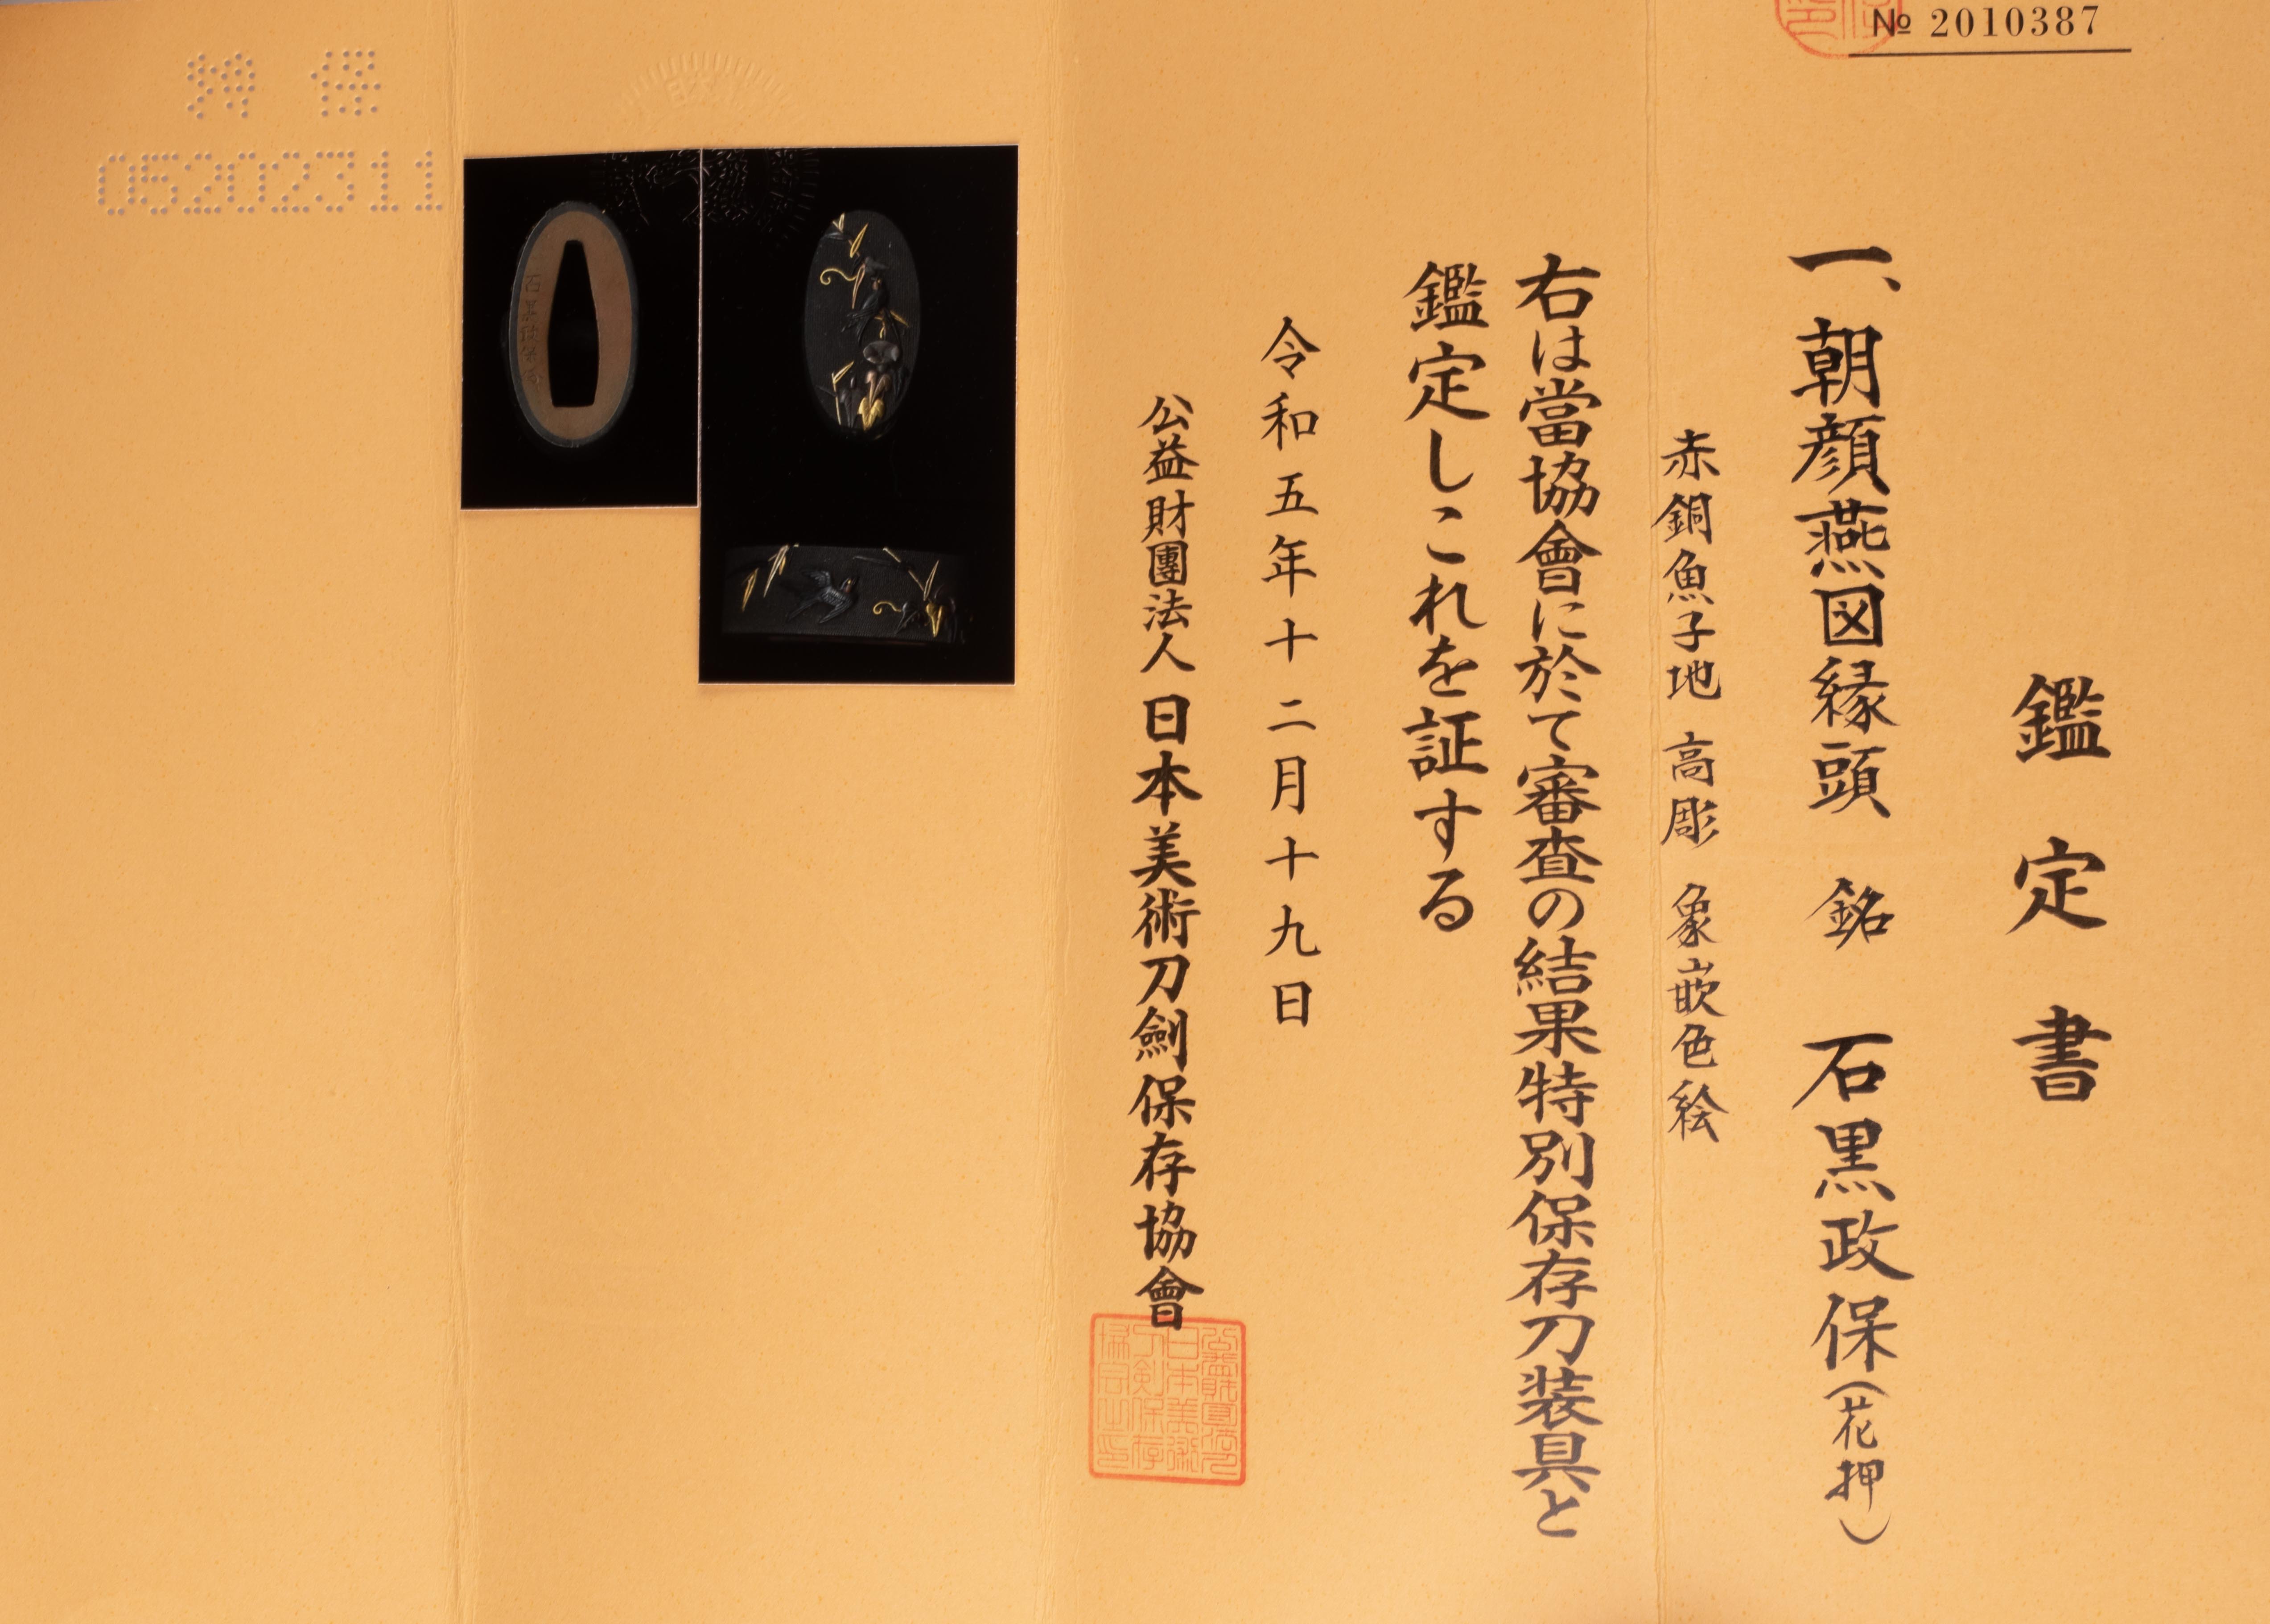 № 2010387
鑑定書
一、朝顔燕図縁頭 銘 石黒政保(花押)
赤銅魚子地 高彫 象嵌色絵
右は當協會に於て審査の結果特別保存刀装具と
鑑定しこれを証する
令和五年十二月十九日
公益財團法人 日本美術刀劍保存協會
05202311